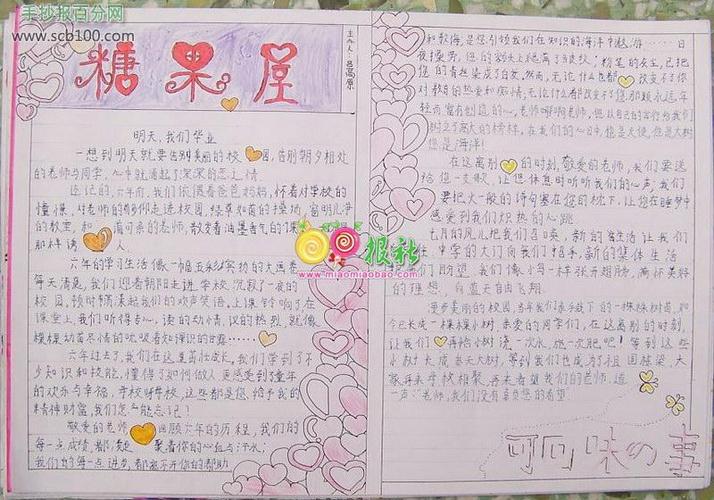 手抄报百分网
www.scb100.com
糖果屋
主办人:吕高原
明天,我们毕业
一想到明天就要告别美丽的校园,告别朝夕相处
的老师与同学,心中就涌起了深深的恋
还记的,六年前,我们依偎着爸爸妈妈,怀着对学校的
憧憬,走进校园,绿草如茵的操场,窗明几净
的教室,和蔼可亲的老师,散发着油墨香气的课
那样诱人。
六年的学习生活像一幅五彩缤纷的大画卷
每天清晨,我们迎着朝阳走进学校,沉寂了一夜的
校园,顿时荡漾起我们的欢声笑语,上课铃响了在
课堂上,我们听得专心,读的动情,议的热烈,就像
棵棵幼苗尽情的吮吸着知识的
六年过去了,我们在这里茁壮成长,我们学到了不
少知识和技能,懂得了如何做人更感受到了童年
的欢乐与幸福。学校呀学校,这些都是您给予我的
精神财富,我们怎能忘记!
敬爱的老师 回顾六年的历程,我们的
每一点成绩,都凝聚着你的心血与汗水;
我们的每一点进步,都离不开你的帮助
和教诲,是您引领我们在知识的海洋中遨游……日
夜操劳,您的额头上爬满了皱纹;粉笔的灰尘,已把
您的青丝染成了白发。然而,无论什么也都改变不了你
对教育的热爱和痴情,无论什么都改变不了您那颗永远年
轻而富有创造的心。老师啊老师,您以自己的言行为我们
树立了高大的榜样,在我们的心目中,您是天使,您是大树
您是海洋!
在这离别的时刻,敬爱的老师,我们要送
给您一支歌,让您休息时听听我们的心声;我们
要把六一般的诗句塞在您的枕下,让您在睡梦中
感受到我们炽热的心跳
七月的风儿把我们召唤,新的生活让我们
中学的大门向我们招手,新的集体生活
们盼望。我们像小鸟一样张开翅膀,满怀美好
的理想,向蓝天自由飞翔。
漫步美丽的校园,当年我们亲手栽下的一棵棵树苗,如
今已长成一棵棵小树。亲爱的同学们,在这离别的时刻,
让我们再给小树浇一次水,施一次肥吧!等到这些
小树长成参天大树,等到我们也成为了祖国栋梁,大
家再来学校相聚,再来看望我们的老师,道
一声:“老师,我们没有辜负您的希望
报社
www.miaomiaobao.com